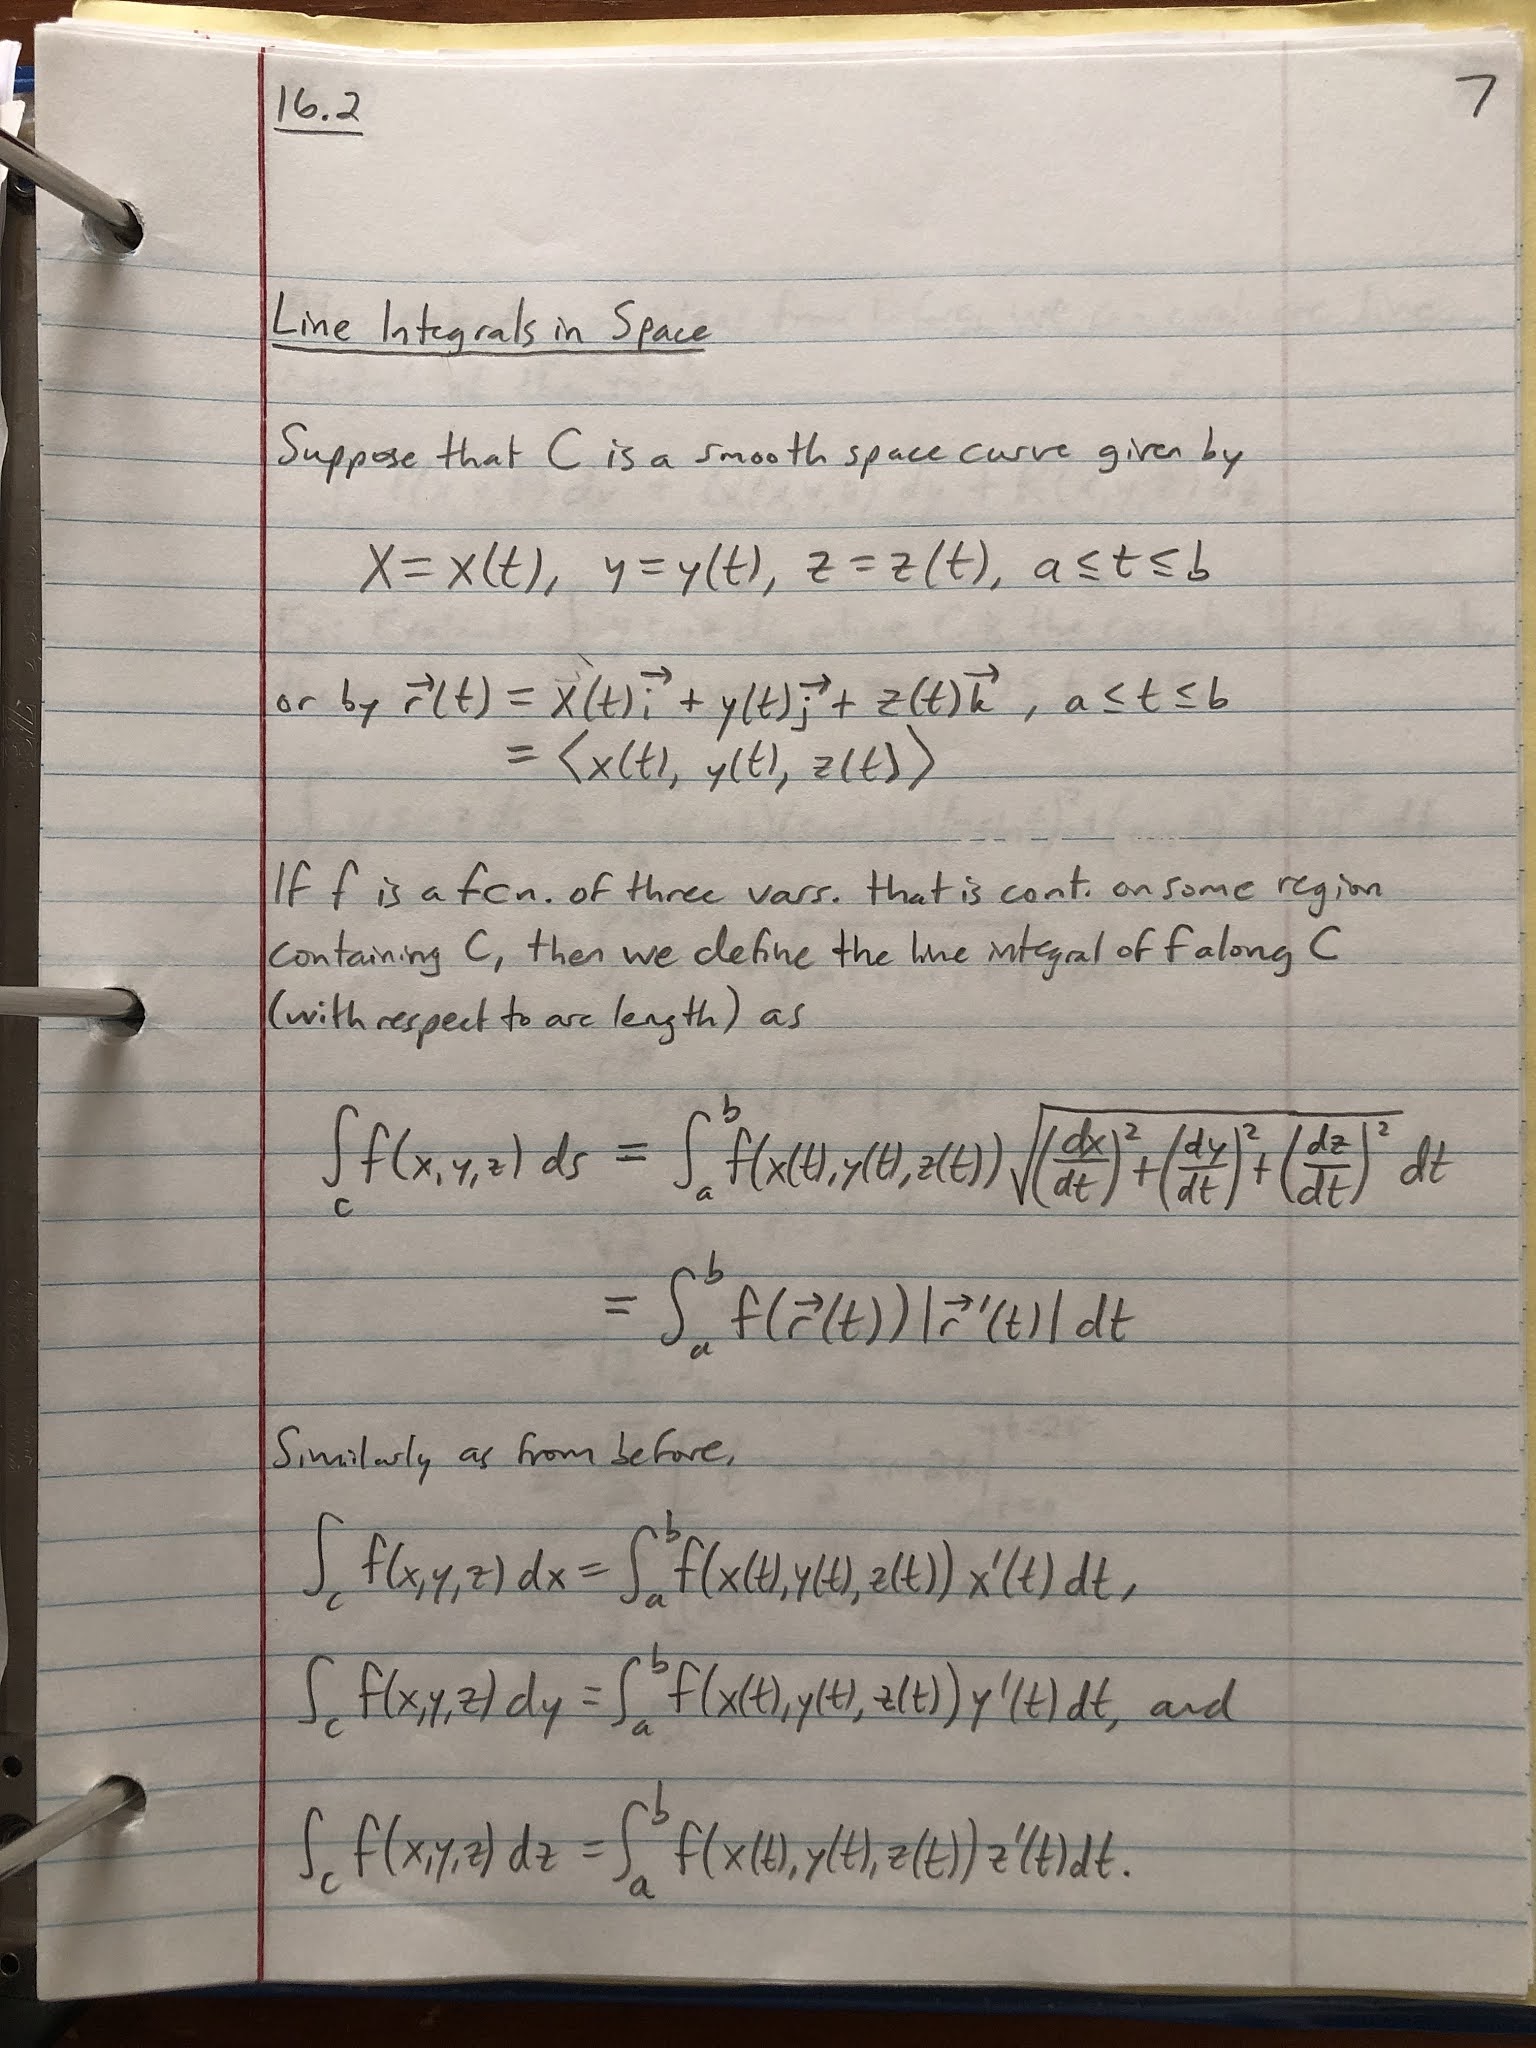 16.2
7
Line Integrals in Space
Suppose that C is a smooth space curve given by
x = x(t), y = y(t), z = z(t), a ≤ t ≤ b
or by r⃗(t) = x(t)i⃗ + y(t)j⃗ + z(t)k⃗, a ≤ t ≤ b
= ⟨x(t), y(t), z(t)⟩
If f is a fcn. of three vars. that is cont. on some region
containing C, then we define the line integral of f along C
(with respect to arc length) as
∫_C f(x,y,z) ds = ∫_a^b f(x(t),y(t),z(t)) √((dx/dt)² + (dy/dt)² + (dz/dt)²) dt
= ∫_a^b f(r⃗(t)) |r⃗'(t)| dt
Similarly as from before,
∫_C f(x,y,z) dx = ∫_a^b f(x(t),y(t),z(t)) x'(t) dt,
∫_C f(x,y,z) dy = ∫_a^b f(x(t),y(t),z(t)) y'(t) dt, and
∫_C f(x,y,z) dz = ∫_a^b f(x(t),y(t),z(t)) z'(t) dt.